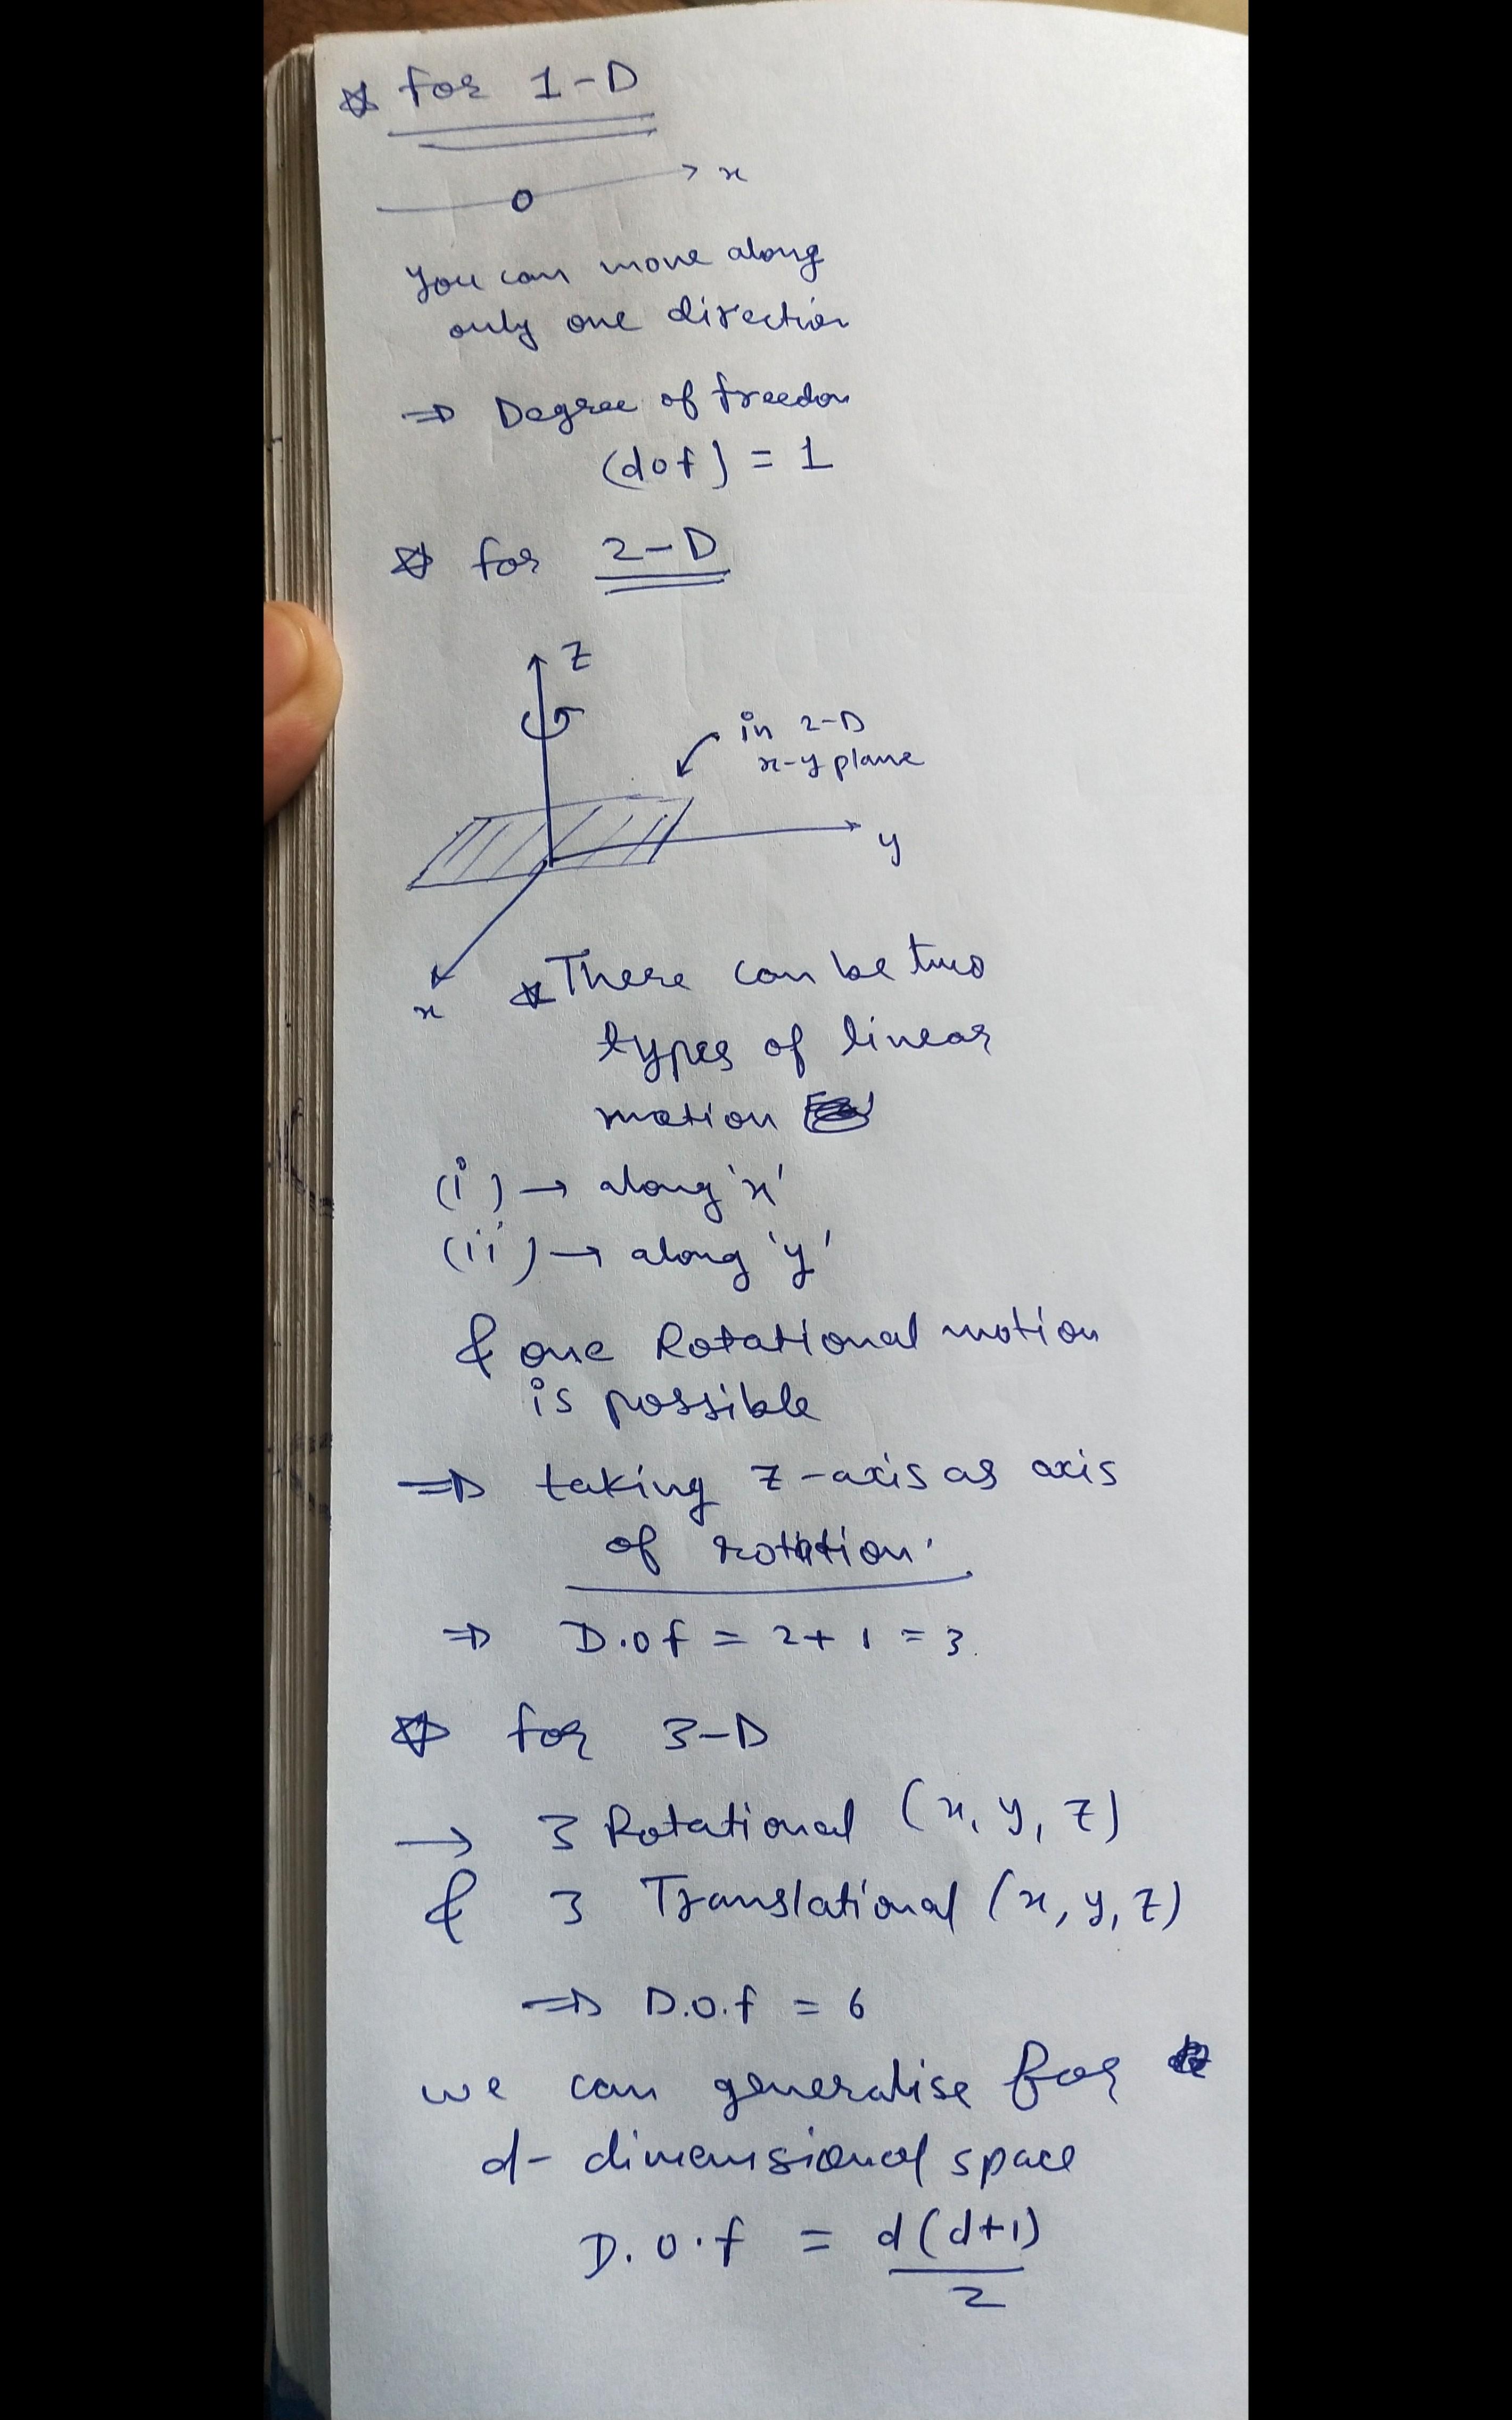 ☆ for 1-D
O x
You can move along
only one direction
⇒ Degree of freedom
(dof) = 1
☆ for 2-D
z
in 2-D
x-y plane
y
x
☆ There can be two
types of linear
motion
(i) → along 'x'
(ii) → along 'y'
& one Rotational motion
is possible
⇒ taking z-axis as axis
of rotation.
⇒ D.of = 2+1 = 3.
☆ for 3-D
→ 3 Rotational (x, y, z)
& 3 Translational (x, y, z)
⇒ D.o.f = 6
we can generalise for
d-dimensional space
D.o.f = d(d+1)
2